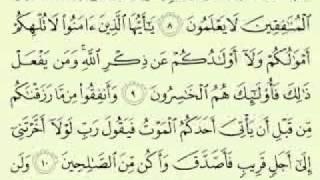 ٱلْمُنَٰفِقِينَ لَا يَعْلَمُونَ ٨ يَٰٓأَيُّهَا ٱلَّذِينَ ءَامَنُوا۟ لَا تُلْهِكُمْ
أَمْوَٰلُكُمْ وَلَآ أَوْلَٰدُكُمْ عَن ذِكْرِ ٱللَّهِ وَمَن يَفْعَلْ
ذَٰلِكَ فَأُو۟لَٰٓئِكَ هُمُ ٱلْخَٰسِرُونَ ٩ وَأَنفِقُوا۟ مِن مَّا رَزَقْنَٰكُم
مِّن قَبْلِ أَن يَأْتِىَ أَحَدَكُمُ ٱلْمَوْتُ فَيَقُولَ رَبِّ لَوْلَآ أَخَّرْتَنِىٓ
إِلَىٰٓ أَجَلٍ قَرِيبٍ فَأَصَّدَّقَ وَأَكُن مِّنَ ٱلصَّٰلِحِينَ ١٠ وَلَن